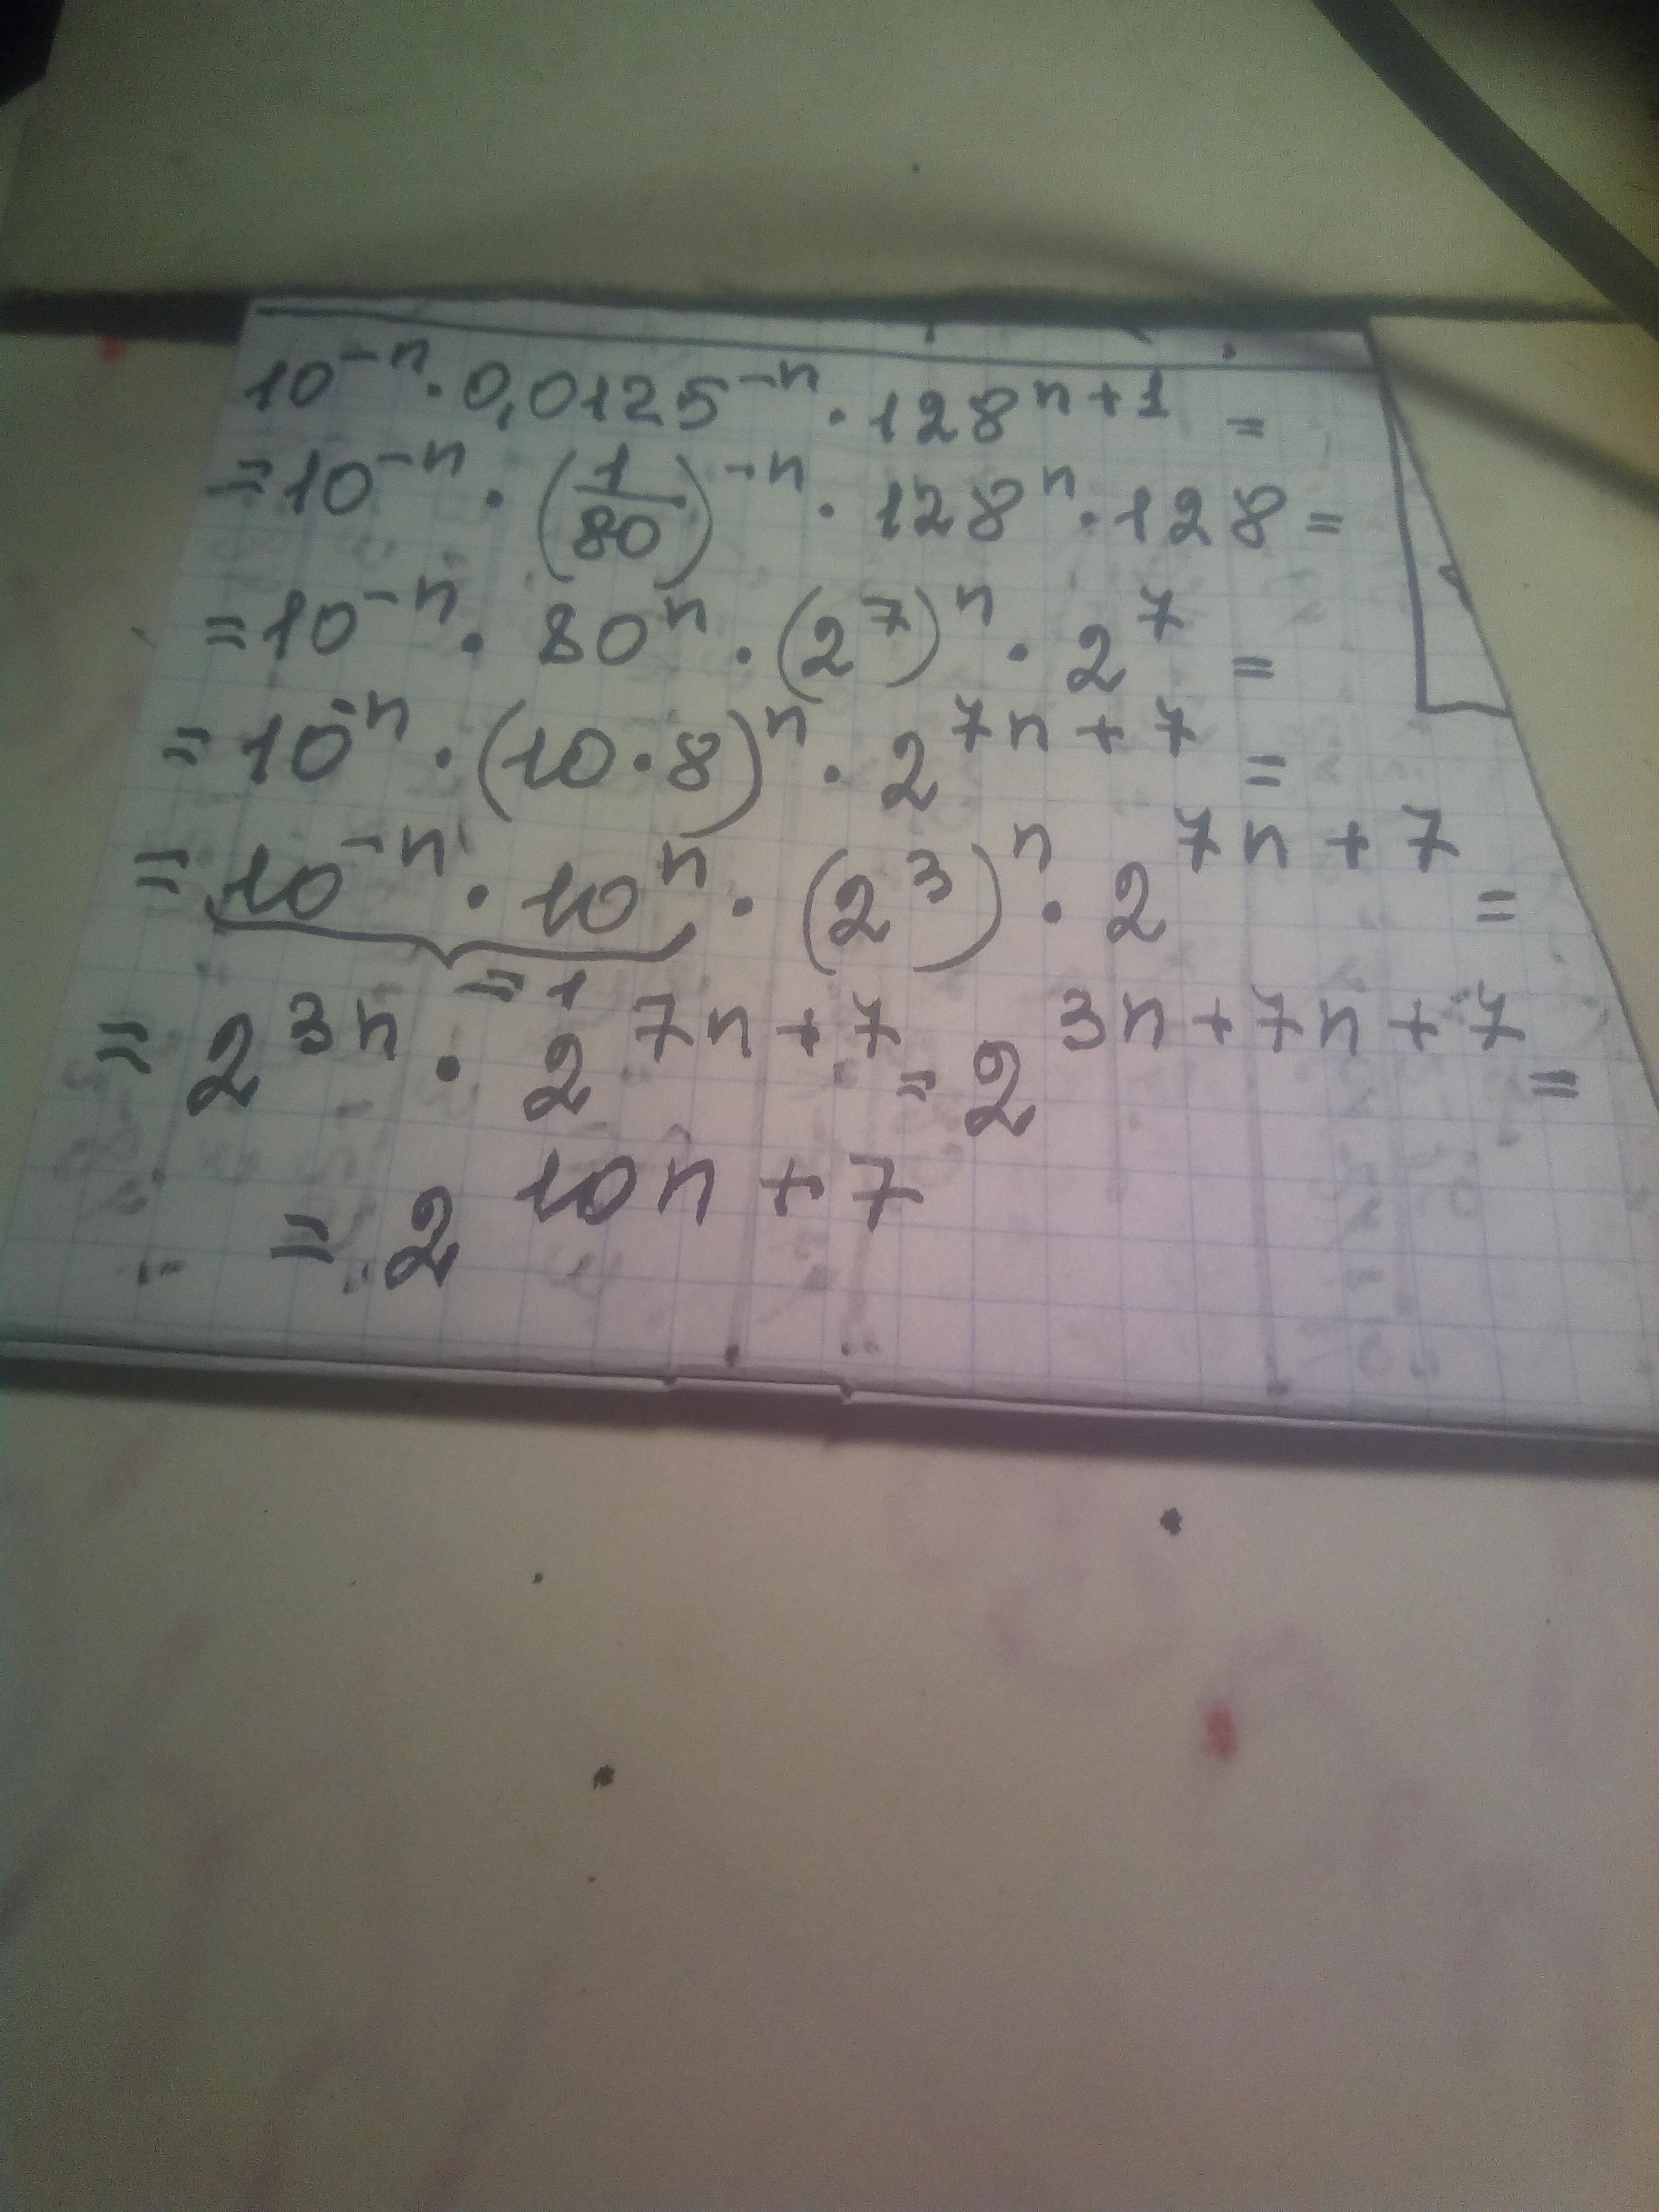 10^{-n} · 0,0125^{-n} · 128^{n+1} =
= 10^{-n} · (1/80)^{-n} · 128^n · 128 =
= 10^{-n} · 80^n · (2^7)^n · 2^7 =
= 10^{-n} · (10·8)^n · 2^{7n+7} =
= 10^{-n} · 10^n · (2^3)^n · 2^{7n+7} =
= 1
= 2^{3n} · 2^{7n+7} = 2^{3n+7n+7} =
= 2^{10n+7}